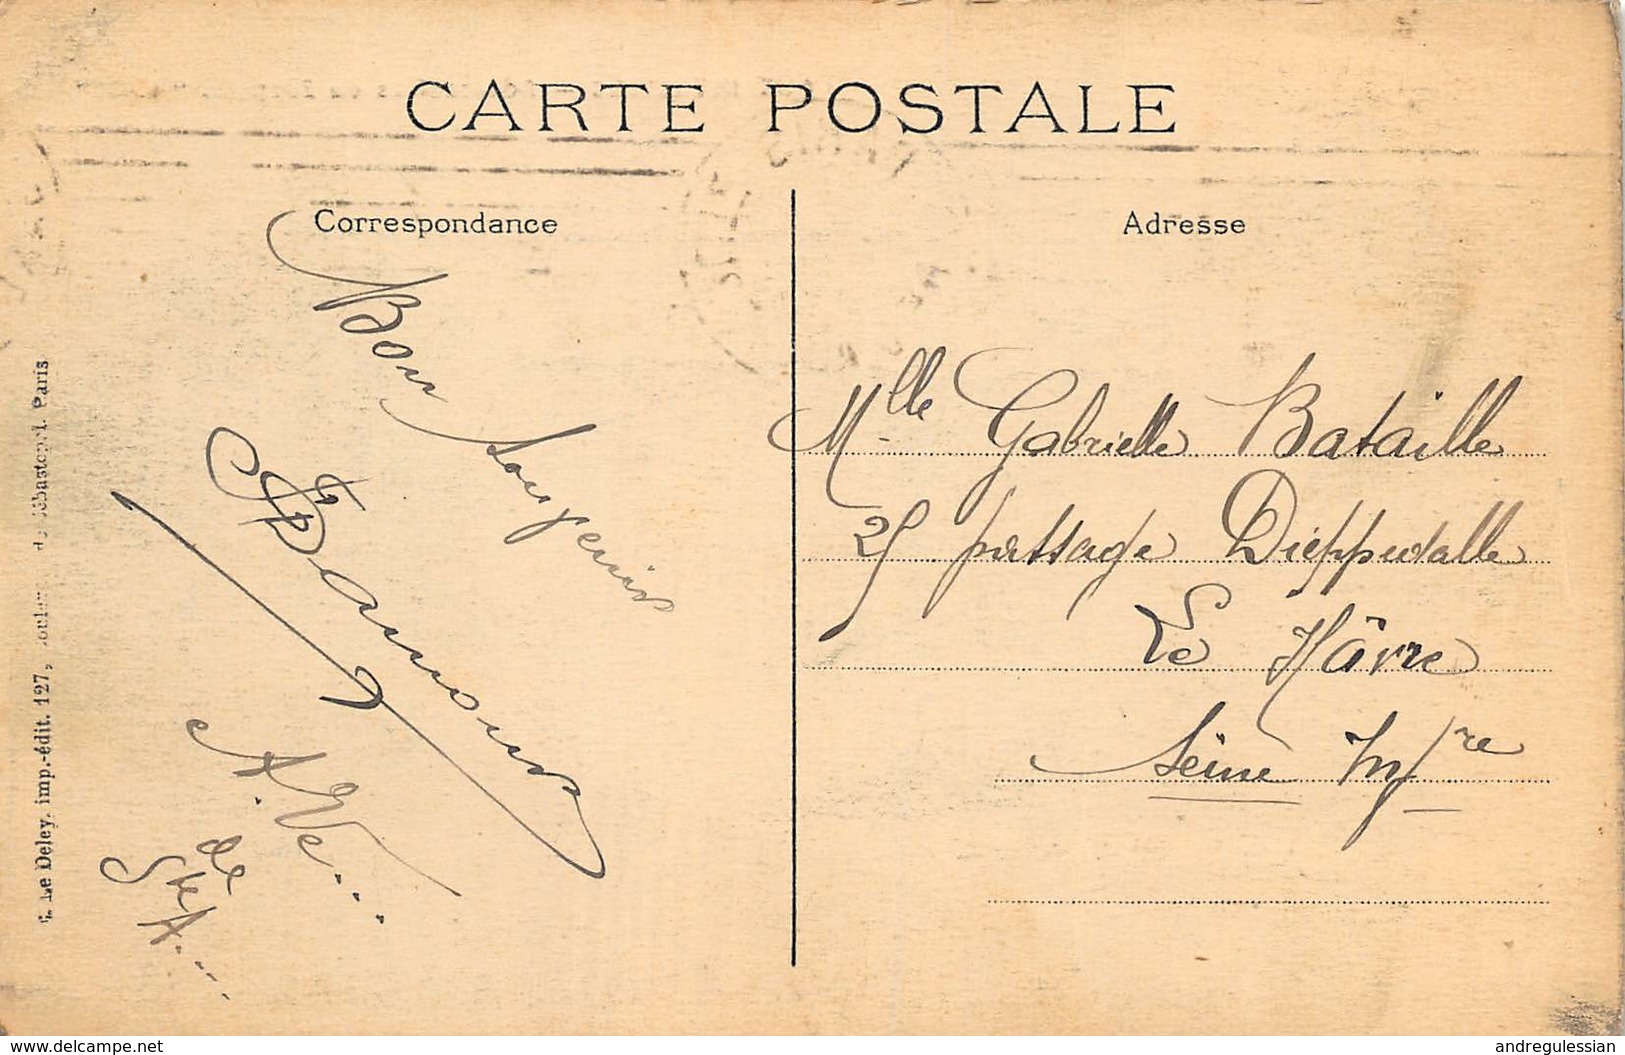 CARTE POSTALE
Correspondance
Adresse
Bon
Souvenir
A. Ve...
de
Ste A....
Mlle Gabrielle Bataille
25 passage Dieppedalle
Le Hâvre
Seine Infre
E. Le Deley, imp.-édit. 127, boulev. de Sébastopol. Paris
www.delcampe.net
andregulessian